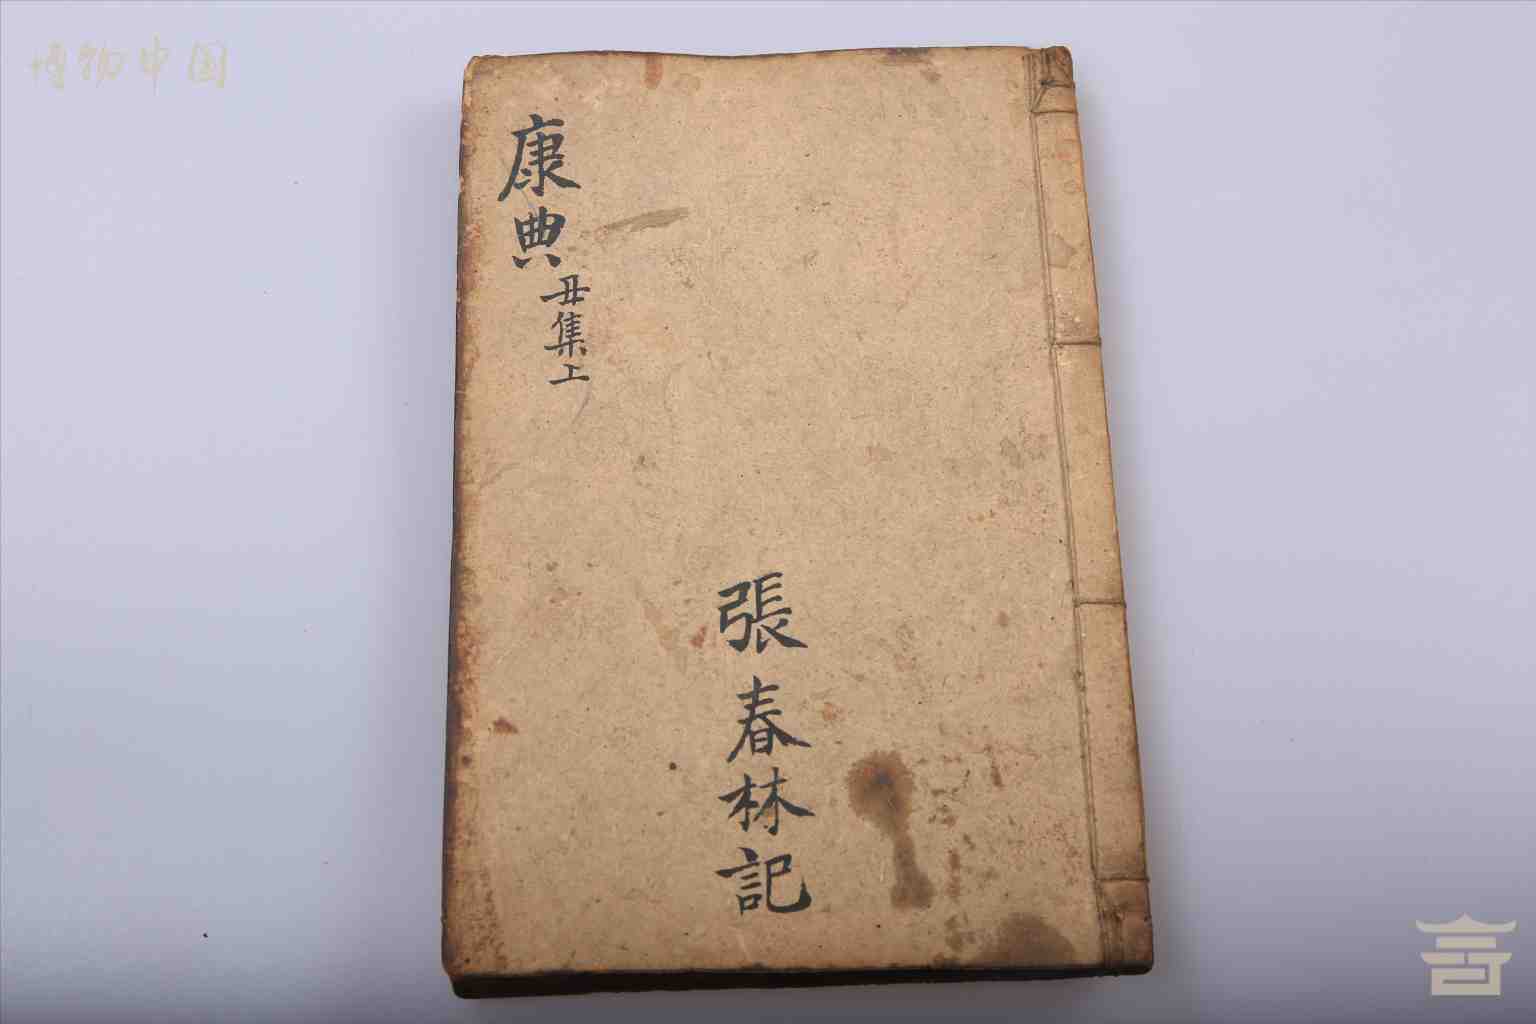 博物中国
康典
丑集上
張春林記